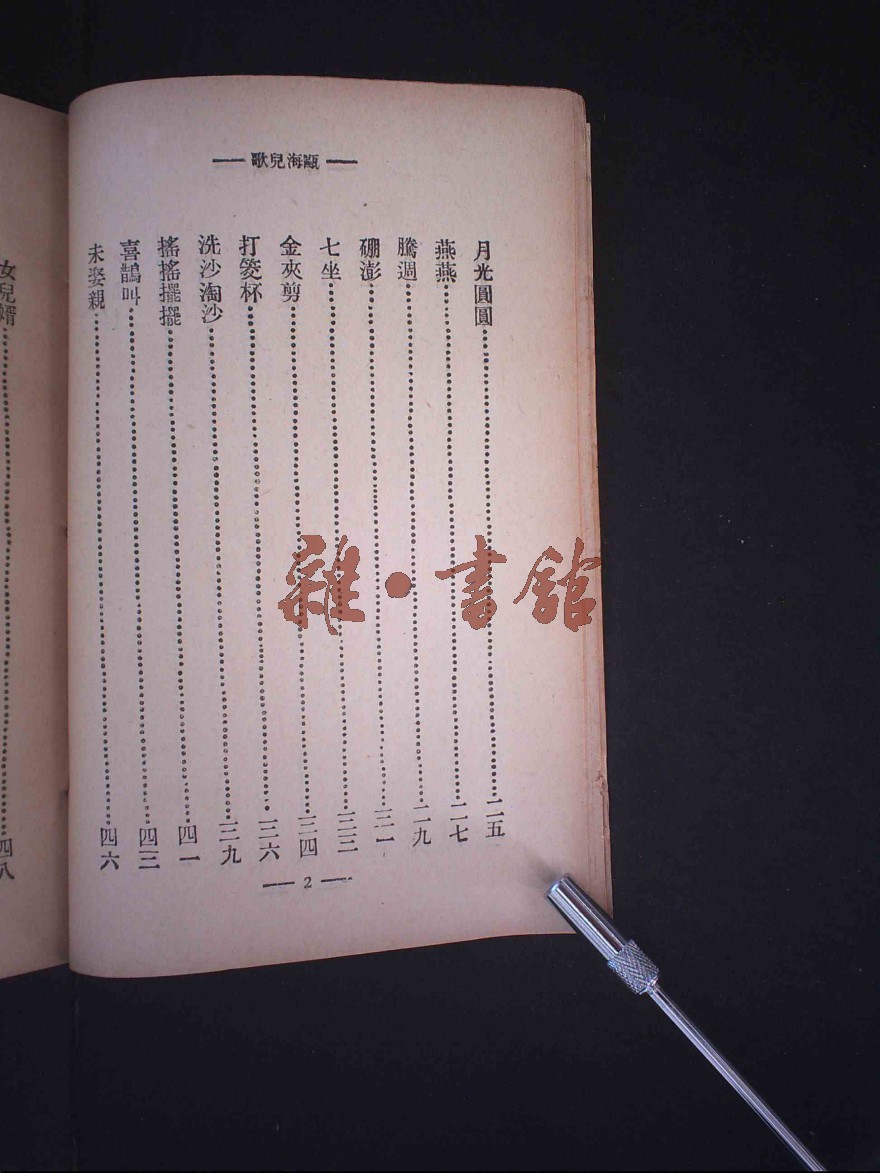 甌海兒歌
月光圓圓 二五
燕燕 二七
騰週 二九
硼澎 三一
七坐 三三
金夾剪 三四
打筊杯 三六
洗沙淘沙 三九
搖搖擺擺 四一
喜鵲叫 四三
未娶親 四六
2
女兒婿 四八
雜·書館